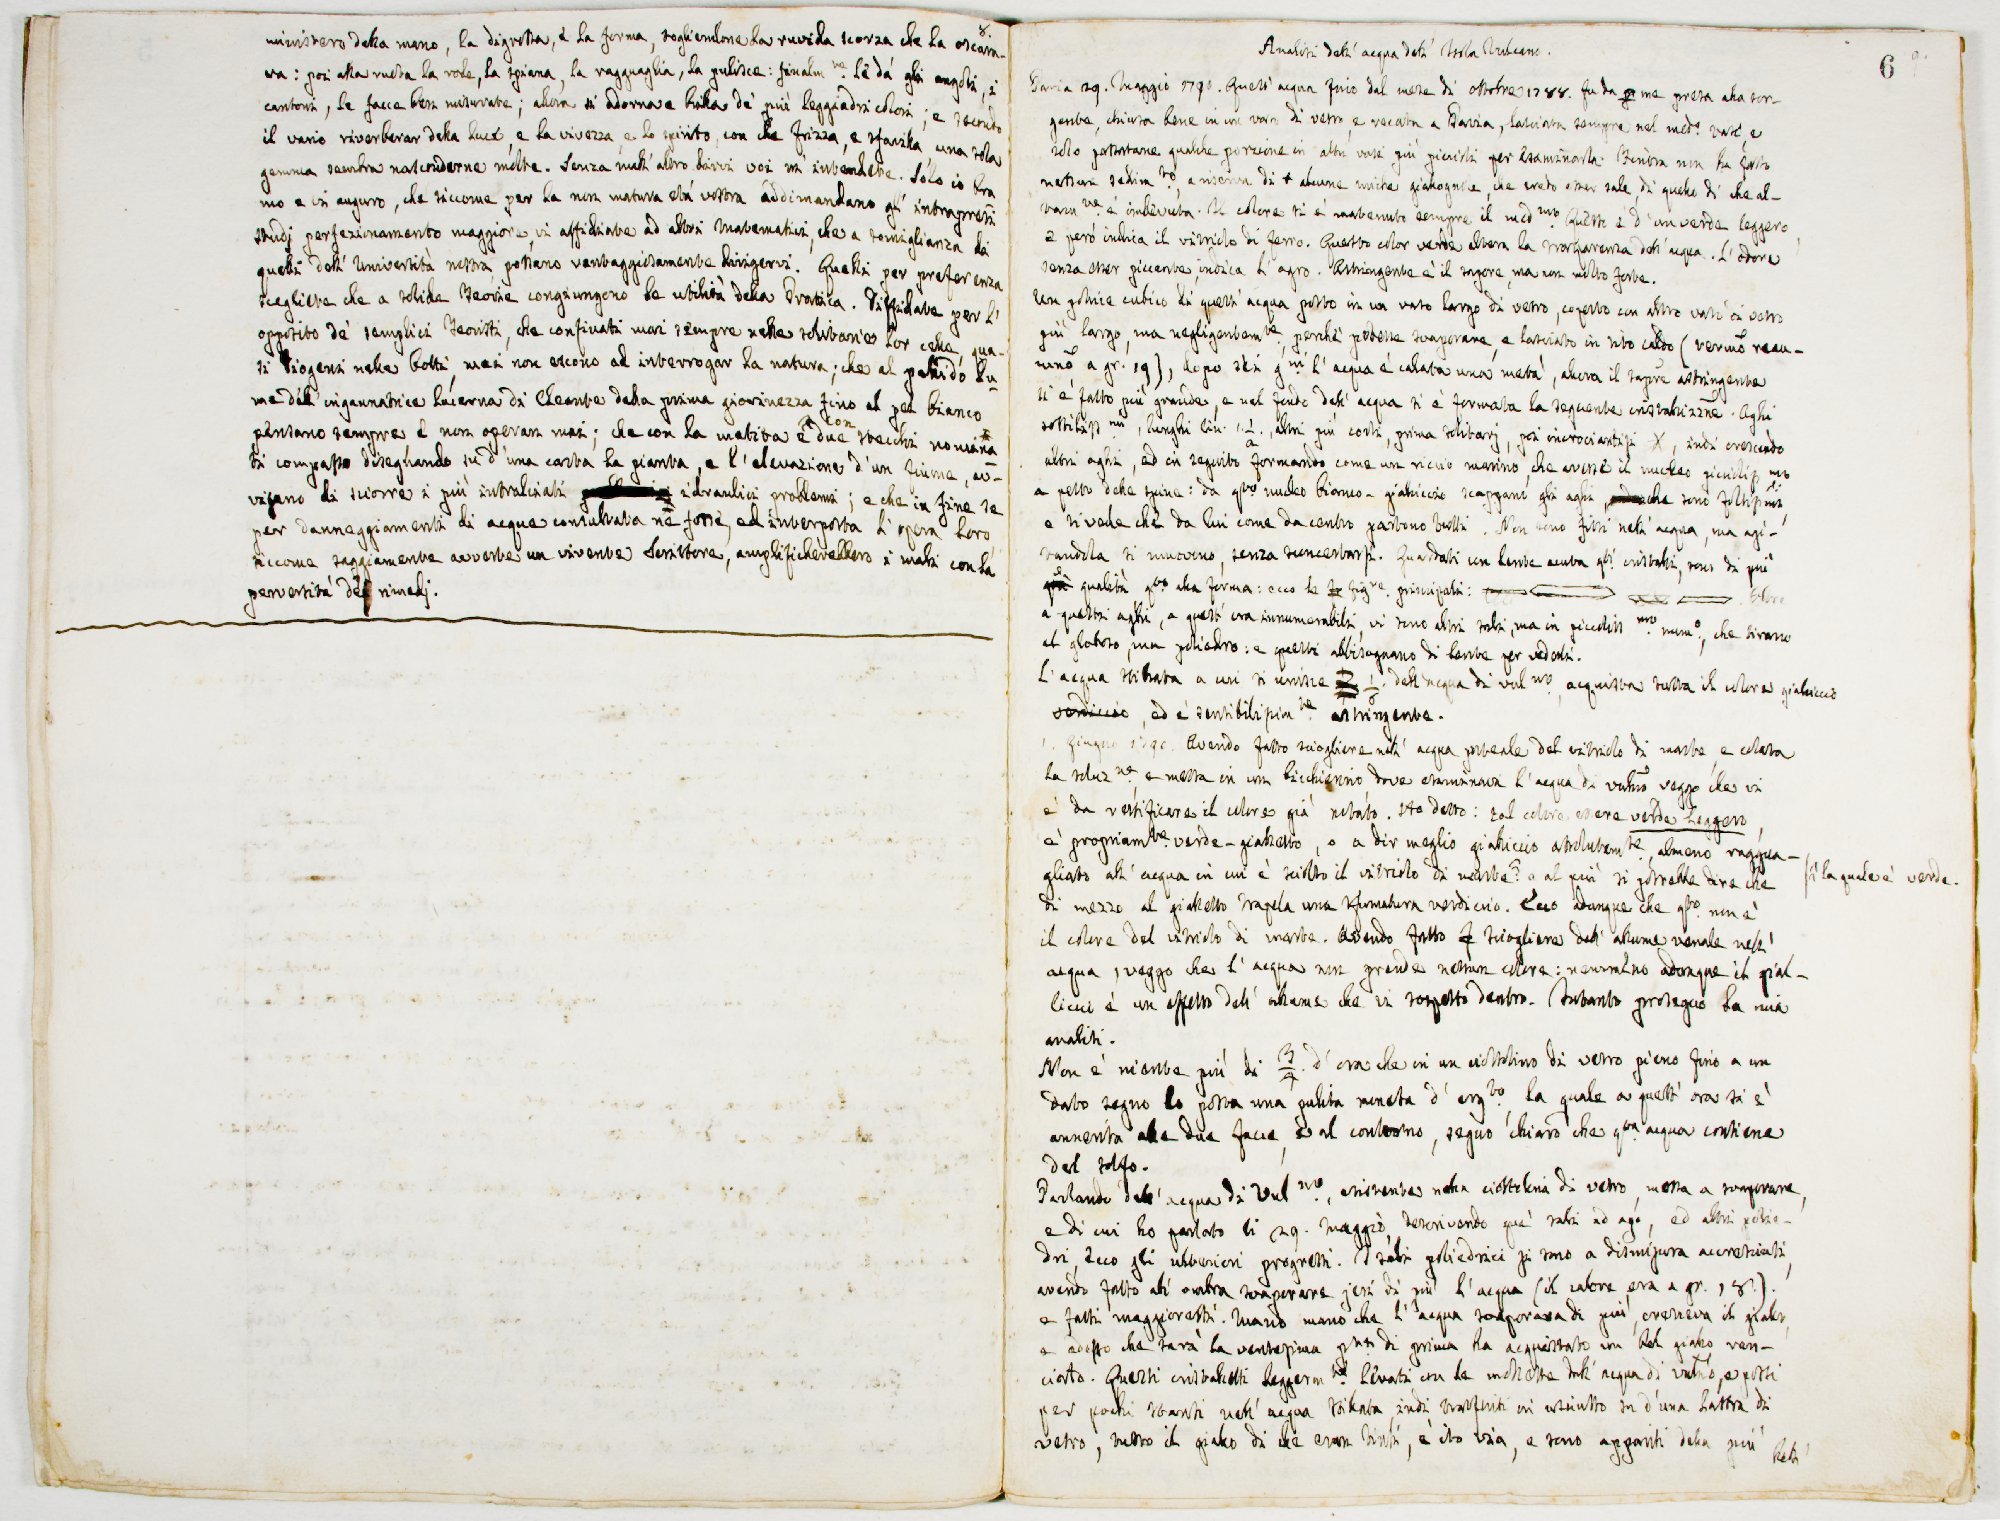 8.
ministero della mano, la digrossa, e la forma, togliendone la ruvida scorza che la oscura-
va: poi alla ruota la rode, la spiana, la ragguaglia, la pulisce: finalm.te le dà gli angoli, i
cantoni, le facce ben misurate; allora si adorna e brilla de' più leggiadri colori; e secondo
il vario riverberar della luce, e la vivezza, e lo spirito, con che frizza, e sfavilla, una sola
gemma sembra nasconderne molte. Senza ch'altro dirvi voi m'intendete. Solo io bra
mo e vi auguro, che siccome per la non matura età vostra addimandano gl'intrapresi
studj perfezionamento maggiore, vi affidiate ad altri Matematici, che a somiglianza di
quelli dell'Università nostra possano vantaggiosamente dirigervi. Quelli per preferenza
scegliete che a solide Teorie congiungono le utilità della Pratica. Diffidate per l'
opposito de' semplici Teoristi, che confinati mai sempre nelle solitarie lor celle, qua-
si Diogeni nelle botti, mai non escono ad interrogar la natura; che al pallido lu-
me dell'ingannatrice lucerna di Cleante dalla prima giovinezza fino al pel bianco
pensano sempre e non operan mai; che con la matita e con due stecchi nomina
ti compasso disegnando su d'una carta la pianta, e l'elevazione d'un fiume, av-
visano di sciorre i più intralciati idraulici problemi; e che in fine se
per danneggiamenti di acque consultata ne fosse, ed interposta l'opera loro
siccome saggiamente avverte un vivente Scrittore, amplificherebbero i mali con la
perversità dei rimedj.
6 9.
Analisi dell'acqua dell'Isola Vulcano.
Pavia 29. Maggio 1790. Quest'acqua fino dal mese di ottobre 1788. fu da me presa alla sor-
gente, chiusa bene in un vaso di vetro, e recata a Pavia, lasciata sempre nel med.o vase e
solo portatane qualche porzione in altri vasi più piccioli per esaminarla. Finora non ha fatto
nessun sedim.to, a riserva di alcune miche giallognole, che credo esser sale, di quello di che al-
è imbevuta. Il colore si è mantenuto sempre il med.mo Questo è d'un verde leggero,
e però indica il vitriolo di ferro. Questo color verde altera la trasparenza dell'acqua. L'odore
senza esser piccante, indica l'agro. Astringente è il sapore, ma non molto forte.
Un pollice cubico di quest'acqua posto in un vaso largo di vetro, coperto con altro vase di vetro
più largo, ma negligentem.te, perchè potesse svaporare, e lasciato in sito caldo (termo reau-
muro a gr. 19), dopo sei g.ni l'acqua è calata una metà, allora il sapore astringente
si è fatto più grande, e nel fondo dell'acqua si è formata la seguente cristallizzne. Aghi
sottiliss.mi, lunghi lin. 1 1/2, altri più corti, prima solitarj, poi incrociantisi X, indi crescendo
altri aghi, ed in seguito formando come un riccio marino, che avesse il nucleo piccolis.mo
a petto delle spine: da q.to nucleo bianco-gialliccio scappano gli aghi, che sono foltissimi
e si vede che da lui come da centro partono tutti. Non sono fitti nell'acqua, ma agi-
tandola si muovono, senza sconcertarsi. Guardati con lente acuta q.ti cristalli, sono di più
qualità q.to alla forma: ecco le fig.re principali:
a questi aghi, a quest'ora innumerabili, vi sono altri sali, ma in piccoliss.mo num.o, che tirano
al globoso, ma poliedro: e questi abbisognano di lente per vedersi.
L'acqua stillata a cui si unisce 1/8. dell'acqua di vul.no, acquista tutta il colore gialliccio
, ed è sensibilissim.te astringente.
1. Giugno 1790. Avendo fatto sciogliere nell'acqua piovale del vitriolo di marte, e colata
la soluz.ne, e messa in un bicchierino, dove esaminava l'acqua di vulcno veggo che vi
è da rettificare il colore già notato. Ho detto: tal colore essere verde leggero,
è propriam.te verde-gialletto, o a dir meglio gialliccio assolutam.te, almeno raggua-
gliato all'acqua in cui è sciolto il vitriolo di marte o al più si potrebbe dire che
la quale è verde.
di mezzo al gialletto trapela una sfumatura verdiccia. Ecco adunque che q.to non è
il colore del vitriolo di marte. Avendo fatto sciogliere dell'allume venale nell'
acqua, veggo che l'acqua non prende nessun colore: nemmeno adunque il gial-
liccio è un effetto dell'allume che vi sospetto dentro. Intanto proseguo la mia
analisi.
Non è niente più di 3/4. d'ora che in un ciottolino di vetro pieno fino a un
dato segno ho posta una pulita moneta d'arg.to, la quale a quest'ora si è
annerita alle due facce, e al contorno, segno chiaro che q.ta acqua contiene
del solfo.
Parlando dell'acqua di Vul.no, esistente nella ciottolina di vetro, messa a svaporare,
e di cui ho parlato li 29. Maggio, descrivendo que' sali ad ago, ed altri polie-
dri, ecco gli ulteriori progressi. I sali poliedrici si sono a dismisura accresciuti,
avendo fatto all'ombra svaporare jeri di più l'acqua (il calore era a gr. 18.).
e fatti maggioretti. Mano mano che l'acqua svaporava di più, cresceva il giallo,
e adesso che sarà la ventesima p.te di prima ha acquistato un bel giallo ran-
ciato. Questi cristalletti leggerm.te levati con le mollette dall'acqua di vulno, e posti
per pochi istanti nell'acqua stillata, indi trasferiti in asciutto su d'una lastra di
vetro, tutto il giallo di che eran tinti, è ito via, e sono apparsi della più
bella